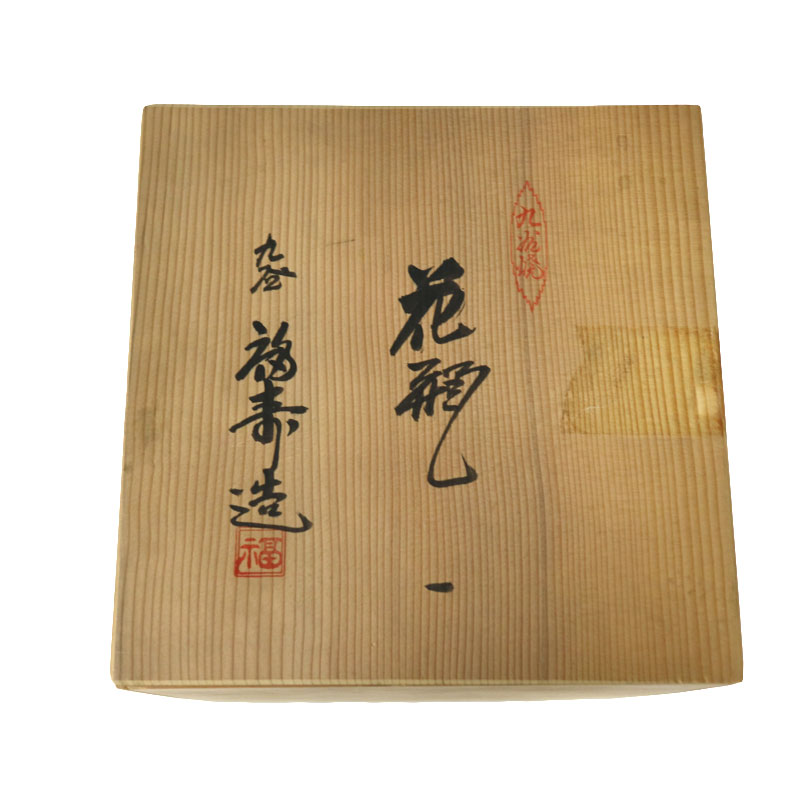 九谷焼
花瓶
一
九谷
福寿造
福